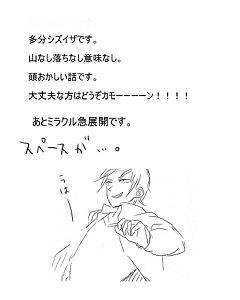 多分シズイザです。
山なし落ちなし意味なし。
頭おかしい話です。
大丈夫な方はどうぞカモーーーーン！！！！
あとミラクル急展開です。
スペースが…。
うはー